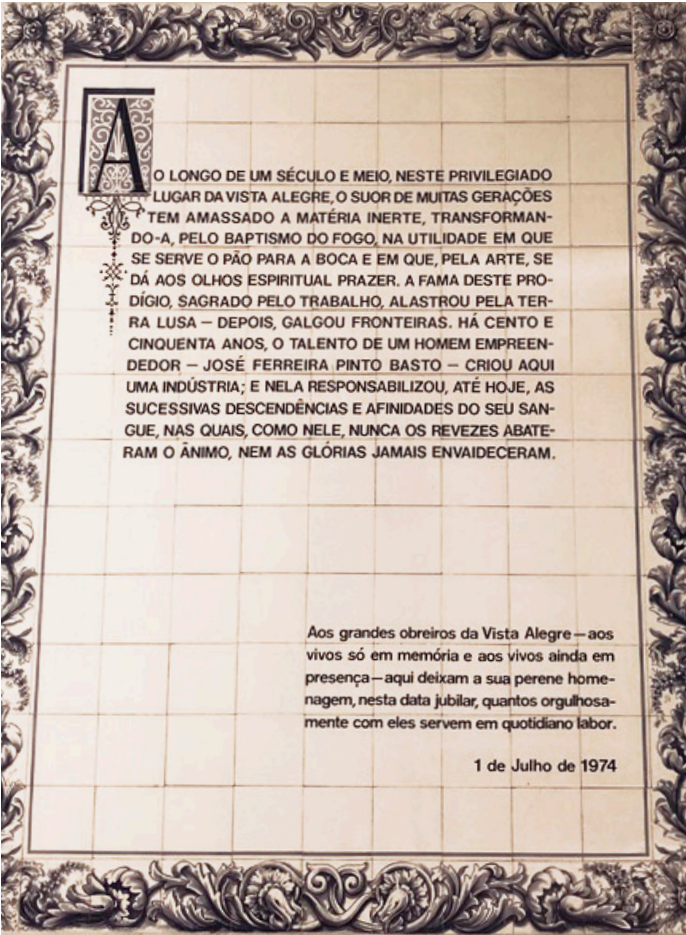 AO LONGO DE UM SÉCULO E MEIO, NESTE PRIVILEGIADO
LUGAR DA VISTA ALEGRE, O SUOR DE MUITAS GERAÇÕES
TEM AMASSADO A MATÉRIA INERTE, TRANSFORMAN-
DO-A, PELO BAPTISMO DO FOGO, NA UTILIDADE EM QUE
SE SERVE O PÃO PARA A BOCA E EM QUE, PELA ARTE, SE
DÁ AOS OLHOS ESPIRITUAL PRAZER. A FAMA DESTE PRO-
DÍGIO, SAGRADO PELO TRABALHO, ALASTROU PELA TER-
RA LUSA — DEPOIS, GALGOU FRONTEIRAS. HÁ CENTO E
CINQUENTA ANOS, O TALENTO DE UM HOMEM EMPREEN-
DEDOR — JOSÉ FERREIRA PINTO BASTO — CRIOU AQUI
UMA INDÚSTRIA; E NELA RESPONSABILIZOU, ATÉ HOJE, AS
SUCESSIVAS DESCENDÊNCIAS E AFINIDADES DO SEU SAN-
GUE, NAS QUAIS, COMO NELE, NUNCA OS REVEZES ABATE-
RAM O ÂNIMO, NEM AS GLÓRIAS JAMAIS ENVAIDECERAM.
Aos grandes obreiros da Vista Alegre — aos
vivos só em memória e aos vivos ainda em
presença — aqui deixam a sua perene home-
nagem, nesta data jubilar, quantos orgulhosa-
mente com eles servem em quotidiano labor.
1 de Julho de 1974